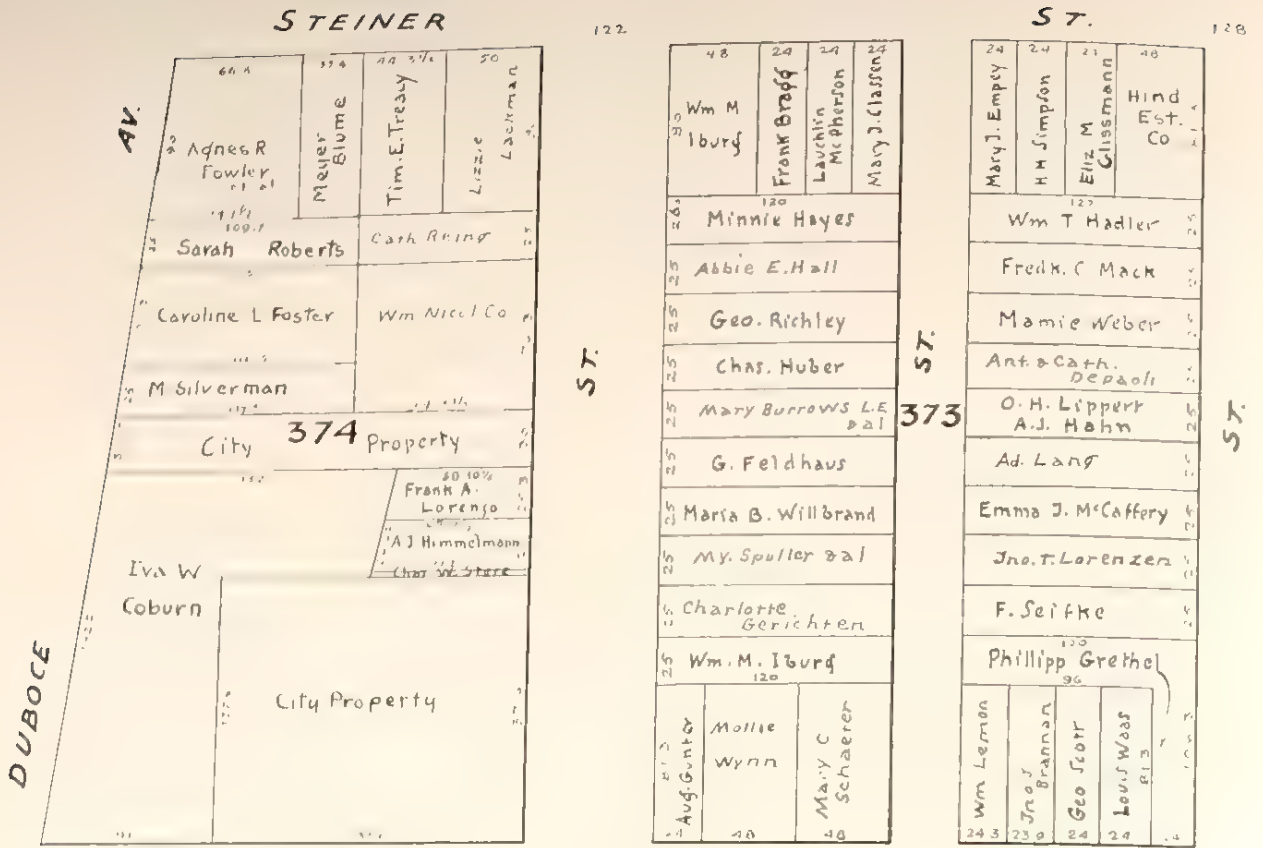 STEINER
ST.
122
128
AV.
DUBOCE
ST.
ST.
ST.
374
373
50
Agnes R
Fowler
et al
Meyer
Blume
Tim. E. Treacy
Lizzie
Lackman
Sarah Roberts
Cath Reing
Caroline L Foster
Wm Nicol Co
M Silverman
City Property
Frank A.
Lorenso
A J Himmelmann
Iva W
Coburn
City Property
48
24
24
24
Wm M
Iburg
Frank Bragg
Lauchlin
McPherson
Mary J. Classen
120
Minnie Hayes
25
Abbie E. Hall
25
Geo. Richley
25
Chas. Huber
25
Mary Burrows L.E
& al
25
G. Feldhaus
25
Maria B. Willbrand
25
My. Spuller & al
25
Charlotte
Gerichten
25
Wm. M. Iburg
120
Aug. Gunter
Mollie
Wynn
Mary C
Schaerer
48
48
24
24
48
Mary J. Empey
H M Simpson
Eliz M
Glissmann
Hind
Est.
Co
Wm T Hadler
25
Fredk. C Mack
Mamie Weber
Ant. & Cath.
Depaoli
O. H. Lippert
A. J. Hahn
25
Ad. Lang
Emma J. McCaffery
Jno. T. Lorenzen
F. Seifke
Phillipp Grethel
96
Wm Lemon
Jno S
Brannan
Geo Scott
Louis Waas
81 3
24 3
23 9
24
24